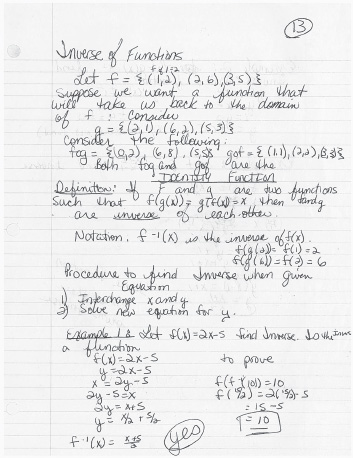 13
Inverse of Functions
f(1)=2
Let f = { (1,2), (2,6), (3,5) }
Suppose we want a function that
will take us back to the domain
of f : Consider
g = {(2,1), (6,2), (5,3)}
Consider the following:
fog = {(2,2), (6,6), (5,5)} gof = { (1,1), (2,2), (3,3) }
Both fog and gof are the
Identity Function
Definition: If F and g are two functions
Such that f(g(x)) = g(f(x)) = x, then f and g
are inverse of each other.
Notation, f -1(x) is the inverse of f(x).
f(g(2)) = f(1) = 2
f(g(6)) = f(2) = 6
Procedure to find Inverse when given
Equation
1) Interchange x and y
2) Solve new equation for y.
Example 1 Let f(x) = 2x-5 find Inverse. Is the Inverse
a function
f(x) = 2x-5 to prove
y = 2x-5
x = 2y-5 f(f -1(10)) = 10
2y-5 = x f(15/2) = 2(15/2)-5
2y = x+5 = 15-5
y = x/2 + 5/2 = 10
f -1(x) = x+5/2 yes